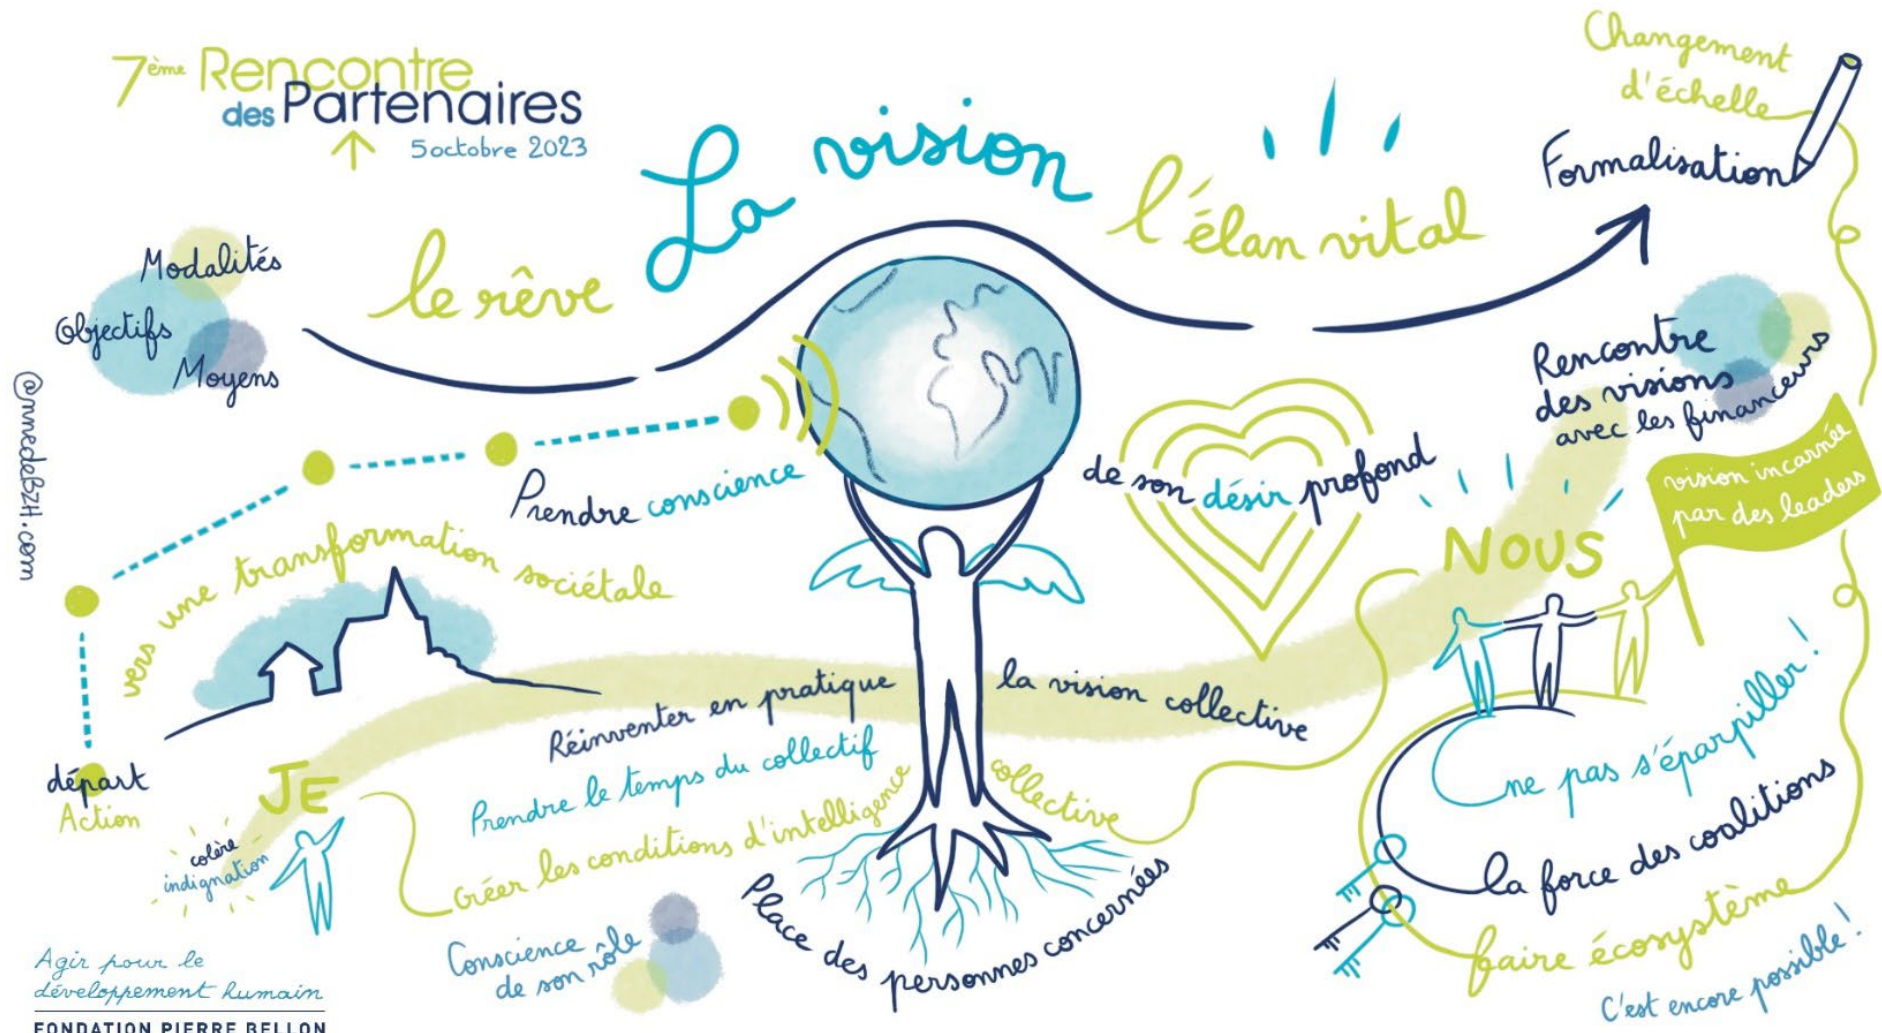 7ème Rencontre
des Partenaires
5 octobre 2023
La vision
le rêve
l'élan vital
Changement
d'échelle
Formalisation
Modalités
Objectifs
Moyens
Prendre conscience
de son désir profond
Rencontre
des visions
avec les financeurs
vision incarnée
par des leaders
NOUS
vers une transformation sociétale
départ
Action
JE
colère
indignation
Réinventer en pratique
la vision collective
Prendre le temps du collectif
Créer les conditions d'intelligence collective
Place des personnes concernées
Conscience
de son rôle
ne pas s'éparpiller !
la force des coalitions
faire écosystème
C'est encore possible !
Agir pour le
développement humain
FONDATION PIERRE BELLON